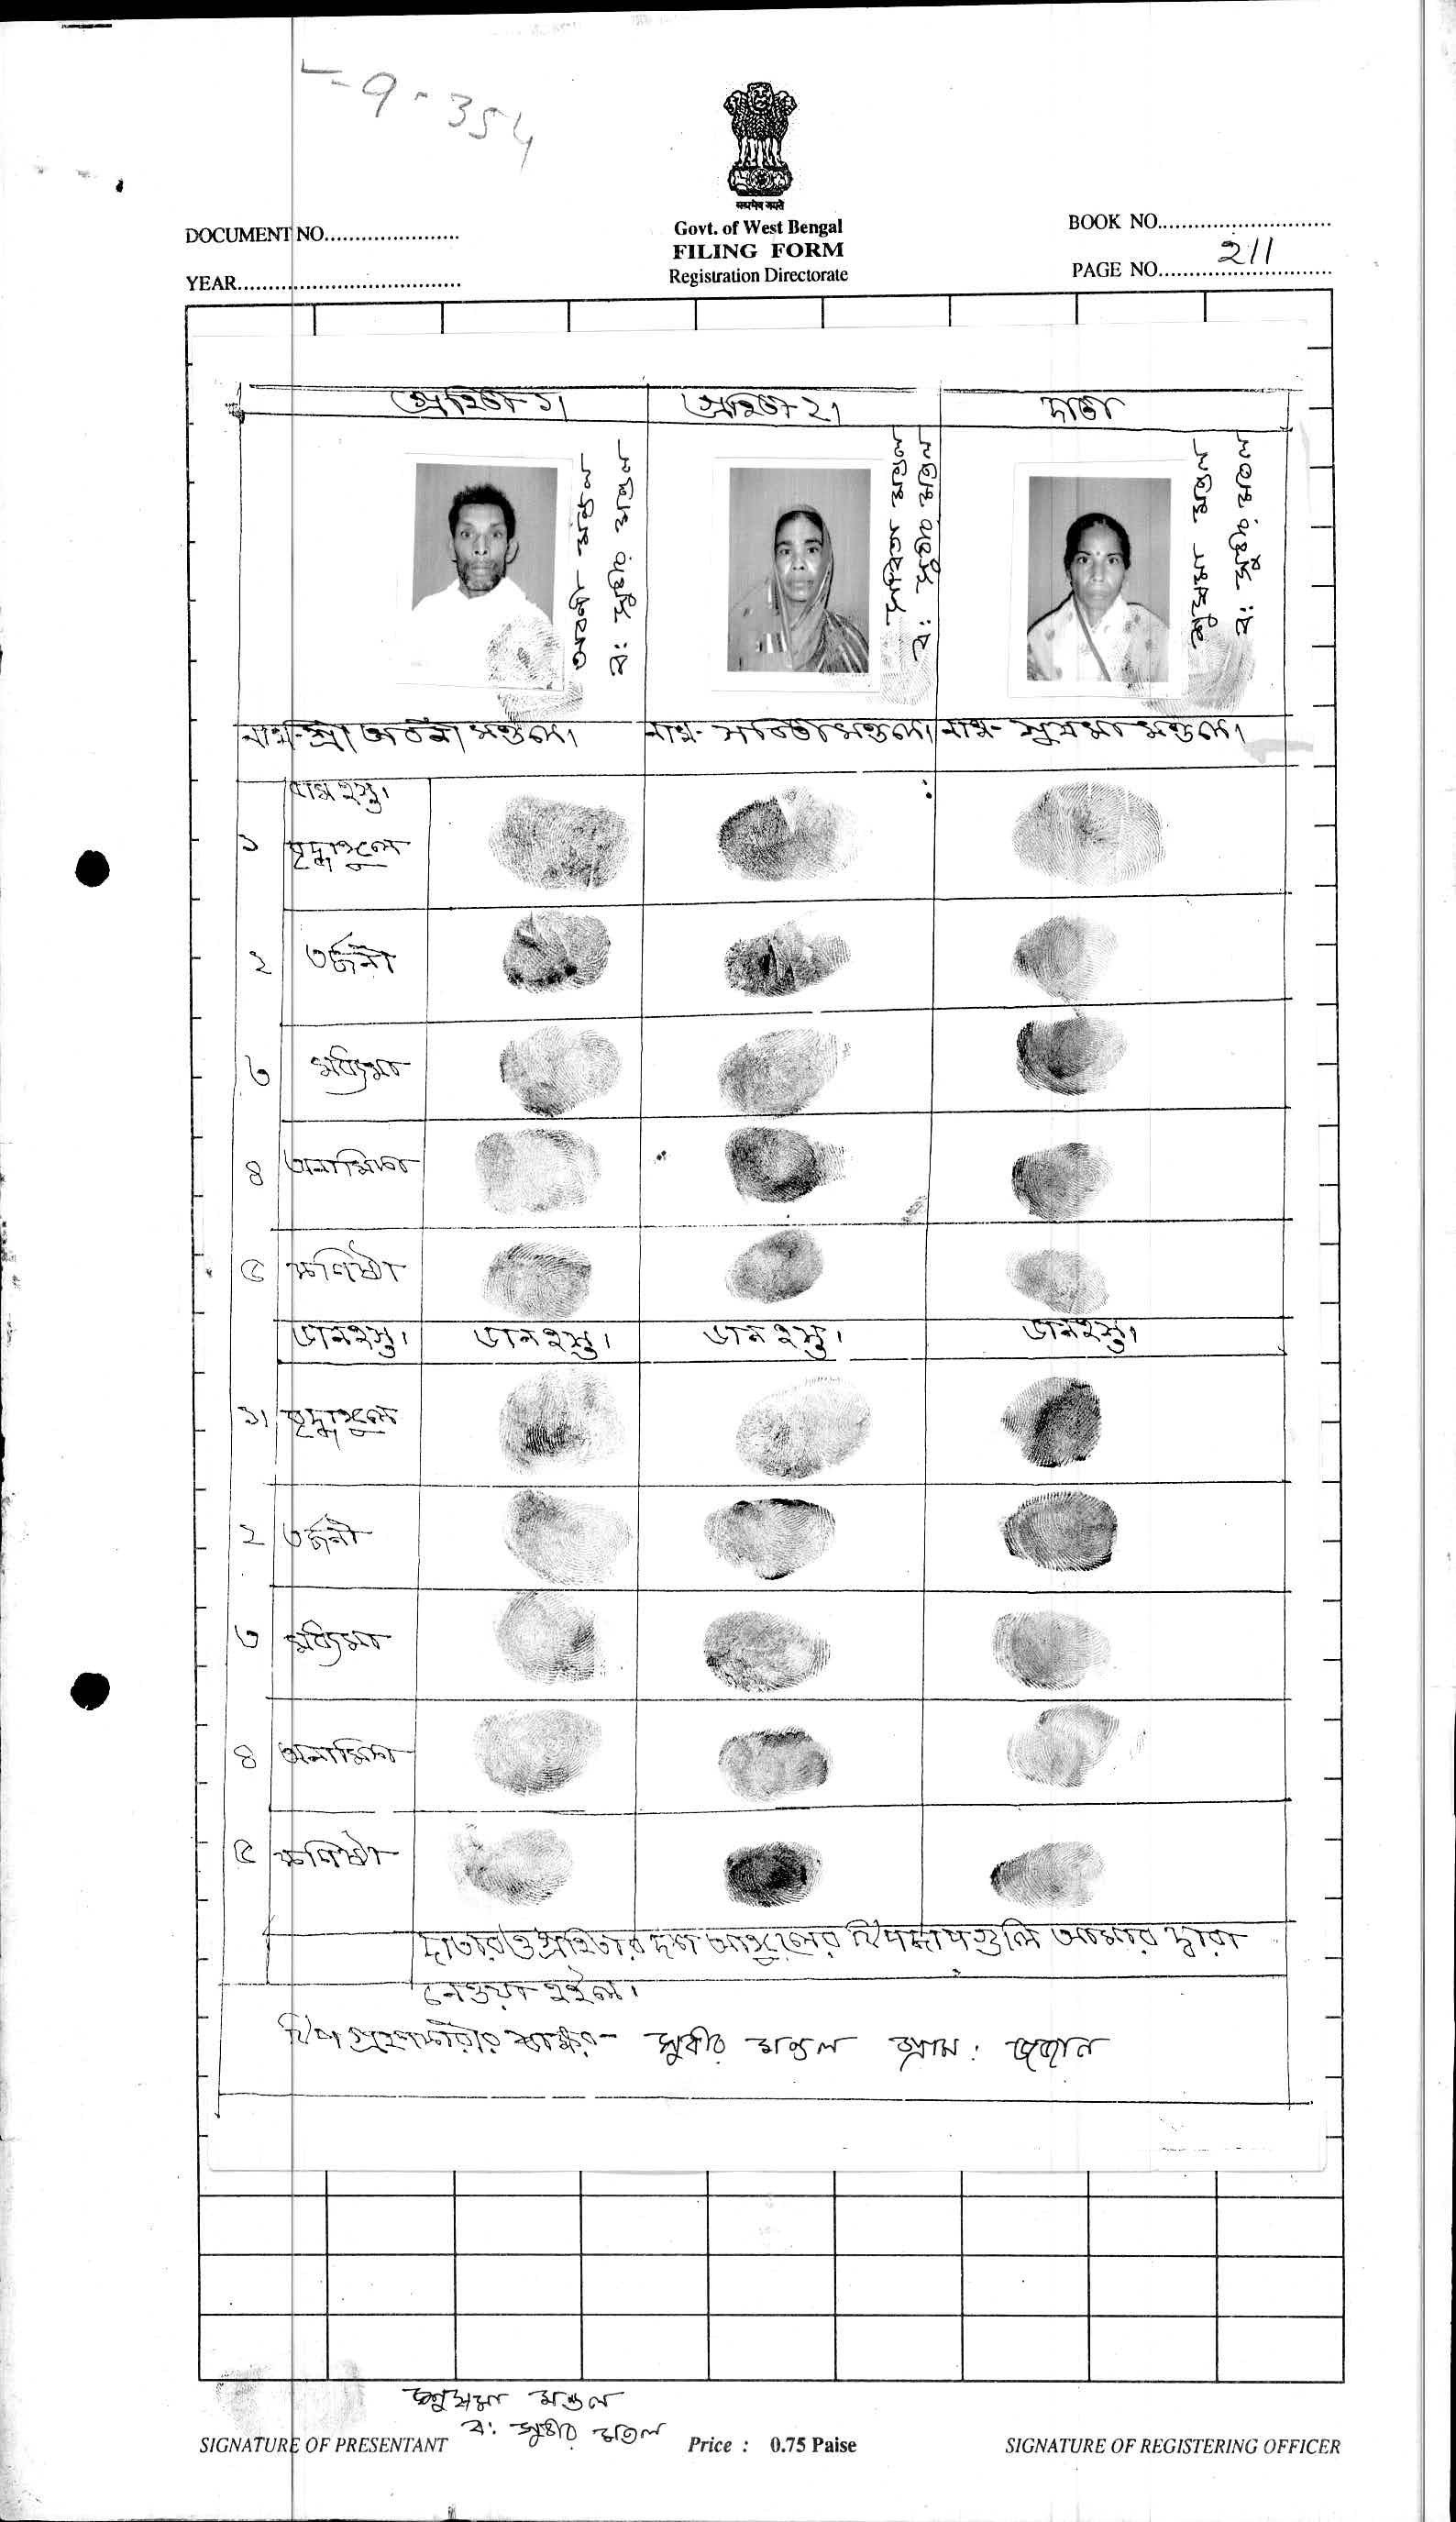 -9-354
सत्यमेव जयते
Govt. of West Bengal
FILING FORM
Registration Directorate
DOCUMENT NO......................
YEAR....................................
BOOK NO............................
PAGE NO............................ 211
গ্রহিতা ১। গ্রহিতা ২। দাতা
অবনী মণ্ডল
ব: সুধীর মণ্ডল
সবিতা মণ্ডল
ব: সুধীর মণ্ডল
সুষমা মণ্ডল
ব: সুধীর মণ্ডল
নাম- শ্রী অবনী মণ্ডল। নাম- সবিতা মণ্ডল। নাম- সুষমা মণ্ডল।
বাম হস্ত।
১ বৃদ্ধাঙ্গুল
২ তর্জনী
৩ মধ্যমা
৪ অনামিকা
৫ কনিষ্ঠা
ডান হস্ত। ডান হস্ত। ডান হস্ত। ডান হস্ত।
১। বৃদ্ধাঙ্গুল
২ তর্জনী
৩ মধ্যমা
৪ অনামিকা
৫ কনিষ্ঠা
দাতার ও গ্রহিতার দশ আঙ্গুলের টিপছাপগুলি আমার দ্বারা
নেওয়া হইল।
টিপ গ্রহণকারীর স্বাক্ষর- সুধীর মণ্ডল গ্রাম:
সুষমা মণ্ডল
ব: সুধীর মণ্ডল
SIGNATURE OF PRESENTANT
Price : 0.75 Paise
SIGNATURE OF REGISTERING OFFICER